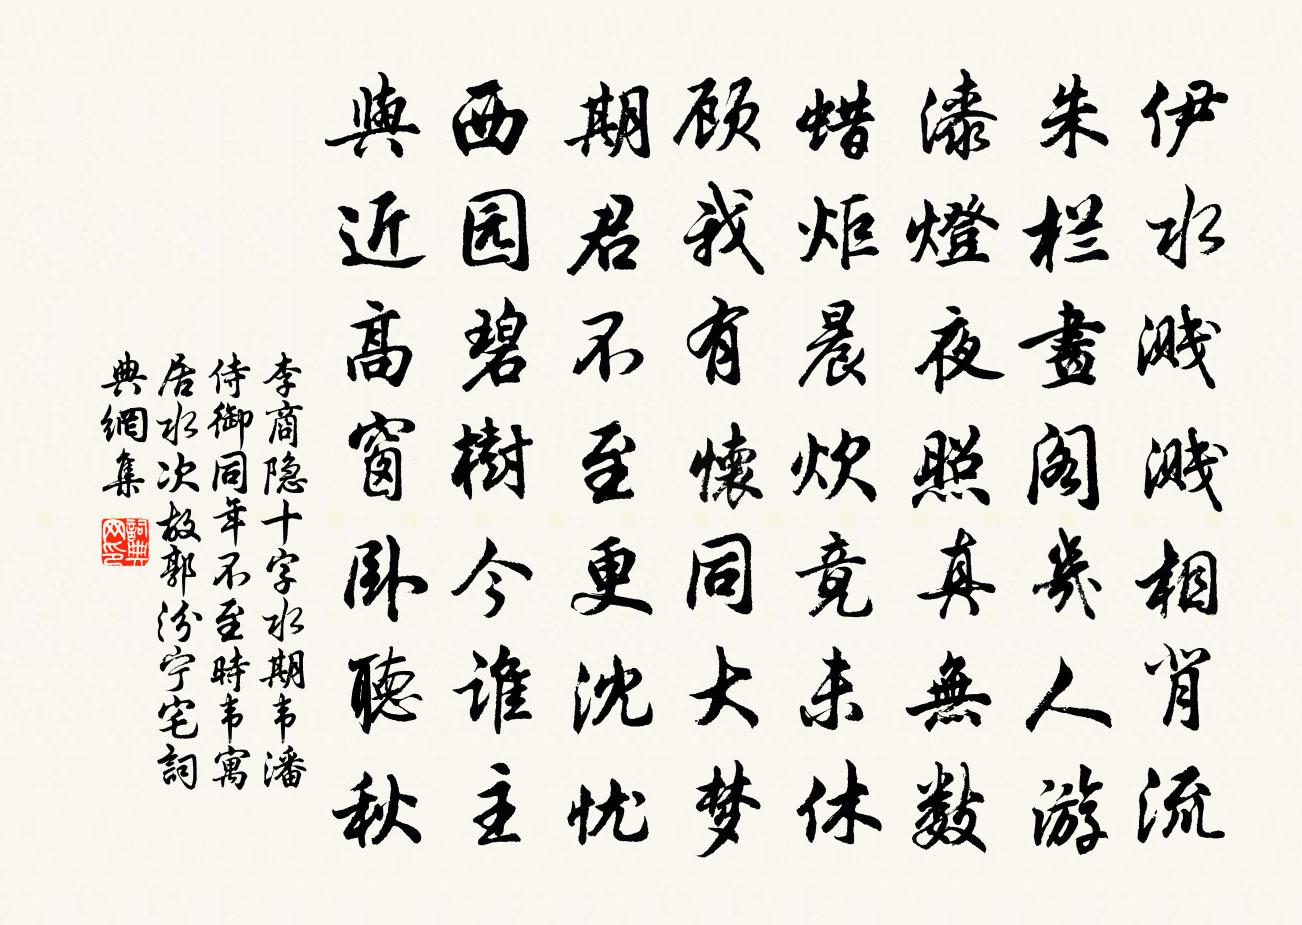 伊水溅溅相背流
朱栏畫阁幾人游
漆燈夜照真無数
蜡炬晨炊竟未休
顾我有懷同大梦
期君不至更沈忧
西园碧樹今谁主
與近高窗卧聽秋
李商隐十字水期韦潘
侍御同年不至時韦寓
居水次故郭汾宁宅詞
典網集
詞典
网印